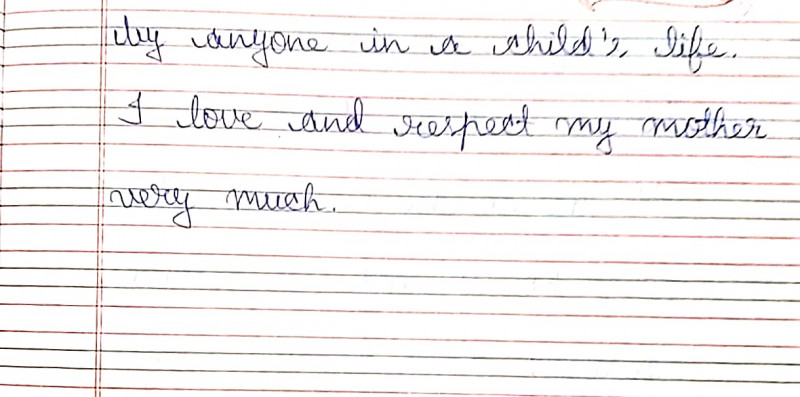 by anyone in a child's life.
I love and respect my mother
very much.